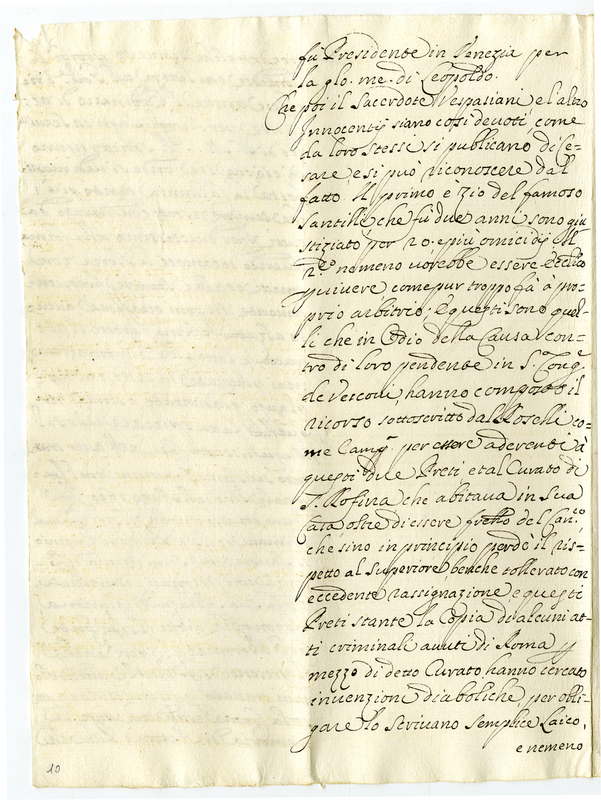 fù Presidente in Venezia per
la glo. me. di Leopoldo.
Che poi il Sacerdote Vespasiani e l'altro
Innocentij siano cosi devoti, come
da loro stessi si publicano di Ce-
sare e si può riconoscere dal
fatto. Il primo e zio del famoso
Santilli che fù due anni sono giu
stiziato por 20. e più omicidij Il
2.do nemeno vorebbe essere
p vivere come pur troppo fà à pro-
prio arbitrio; E questi sono quel-
li che in Odio della Causa con-
tro di loro pendente in S. Cong.e
de Vescovi hanno composto il
ricorso sottoscritto dal Roselli co=
me Camp. per essere aderente à
questi due Preti et al Curato di
S. Rofina che abitava in sua
Casa oltre di essere frello del Can.co
che sino in principio perdè il ris-
petto al Superiore benche tollerato con
eccedente rassignazione e questi
Preti stante la Copia di alcuni at-
ti criminali avuti di Roma p
mezzo di detto Curato hanno cercato
invenzioni diaboliche per obli-
gare lo Scrivano semplice Laico,
e nemeno
10